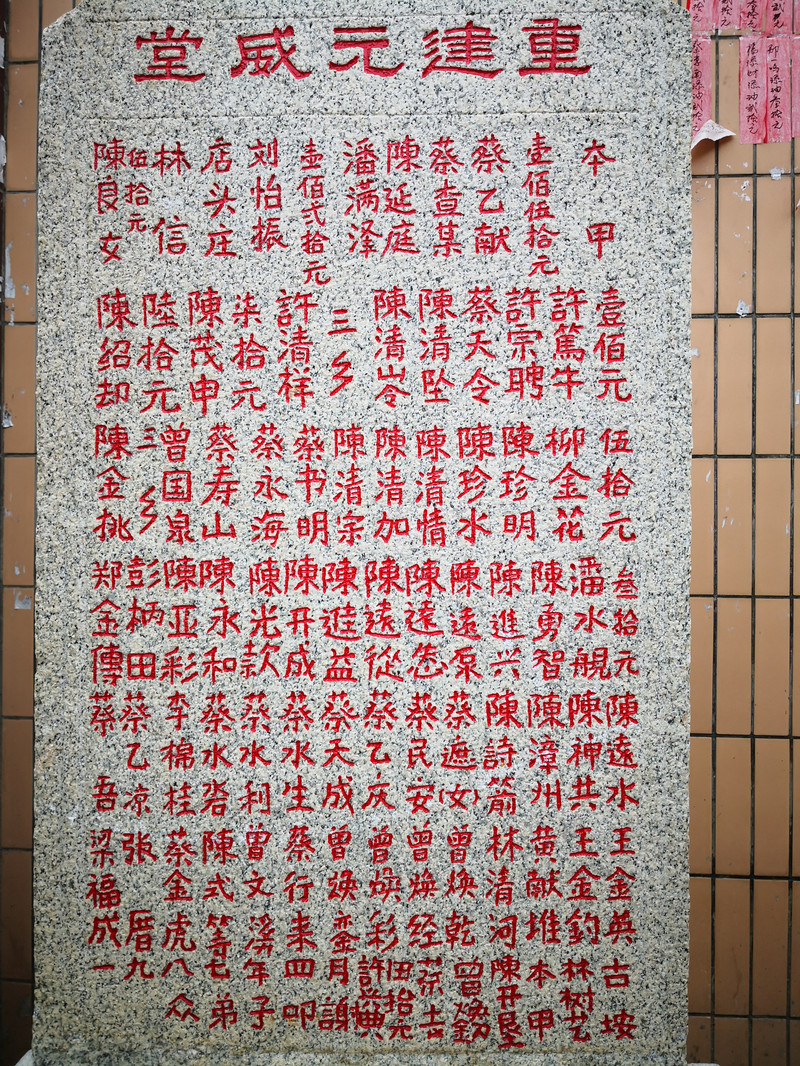 重建元威堂
本甲
壹佰伍拾元
蔡乙献
蔡查某
陳延庭
潘满泽
壹佰弍拾元
刘怡振
店头庄
林信
伍拾元
陳良女
壹佰元
許篤牛
許宗聘
蔡天令
陳清坠
陳清岺
三乡
許清样
柒拾元
陳茂申
陸拾元
陳绍却
伍拾元
柳金花
陳珍明
陳珍水
陳清情
陳清加
陳清宗
蔡书明
蔡永海
蔡寿山
曾国泉
三乡
陳金挑
叁拾元
潘水舰
陳勇智
陳進兴
陳遠泵
陳遠
陳遠從
陳進益
陳开成
陳光款
陳永和
陳亚彩
彭柄田
郑金傅
陳遠水
陳神共
陳漳州
陳詩箭
蔡遮(女)
蔡民安
蔡乙庆
蔡天成
蔡水生
蔡水利
蔡水砻
李棉桂
蔡乙凉
蔡吾
王金英
王金鈞
黄献堆
林清河
曾焕乾
曾焕经
曾焕彩
曾焕銮
蔡行来
曾文溪
陳式等
蔡金虎
张厝
梁福成
古垵
林树艺
本甲
陳开垦
曾
蔡
伍拾元
許
一九八七年四月
众弟子叩謝